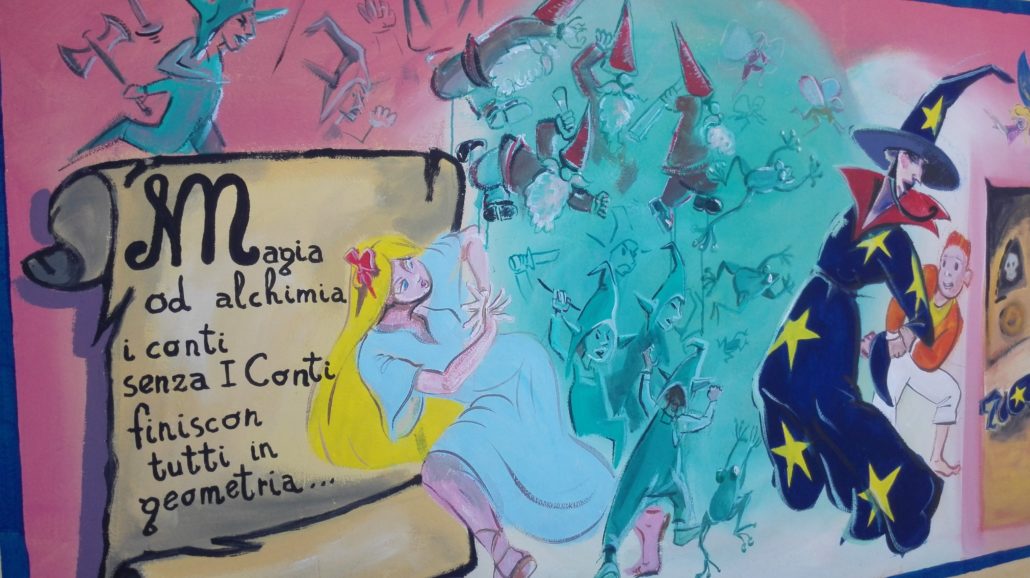 Magia
od alchimia
i conti
senza I Conti
finiscon
tutti in
geometria...